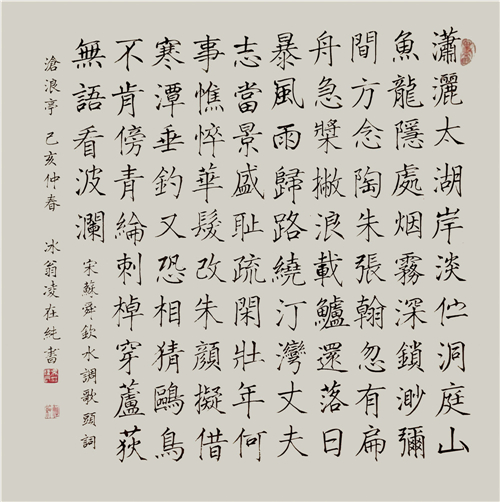 瀟灑太湖岸淡伫洞庭山
魚龍隱處烟霧深鎖渺彌
間方念陶朱張翰忽有扁
舟急槳撇浪載鱸還落日
暴風雨歸路繞汀灣丈夫
志當景盛耻疏閑壯年何
事憔悴華髮改朱顏擬借
寒潭垂釣又恐相猜鷗鳥
不肯傍青綸刺棹穿蘆荻
無語看波瀾
宋蘇舜欽水調歌頭詞
滄浪亭 己亥仲春 冰翁凌在純書